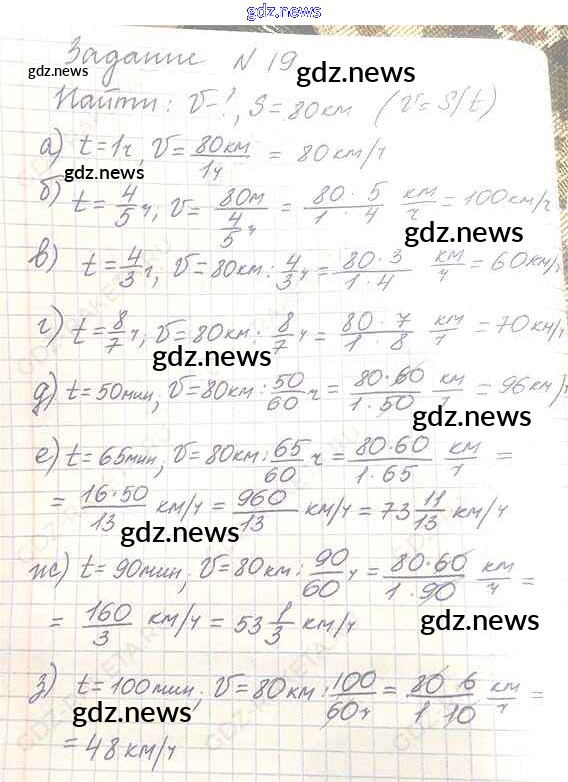 gdz.news
Задание N 19
gdz.news
gdz.news
Найти: V-?, S=80км (V=S/t)
а) t=1ч, V=80км/1ч = 80км/ч
gdz.news
б) t=4/5ч, V=80м/4/5ч = 80·5/1·4 км/ч = 100км/ч
gdz.news
в) t=4/3ч, V=80км:4/3ч=80·3/1·4 км/ч=60км/ч
г) t=8/7ч, V=80км:8/7ч=80·7/1·8 км/ч=70км/ч
gdz.news
д) t=50мин, V=80км:50/60ч=80·60/1·50 км/ч=96км/ч
gdz.news
е) t=65мин, V=80км:65/60ч=80·60/1·65 км/ч=
=16·50/13 км/ч=960/13 км/ч=73 11/13 км/ч
gdz.news
ж) t=90мин, V=80км:90/60ч=80·60/1·90 км/ч=
=160/3 км/ч=53 1/3 км/ч
gdz.news
з) t=100мин, V=80км:100/60ч=80 6/1 10 км/ч=
gdz.news
=48км/ч